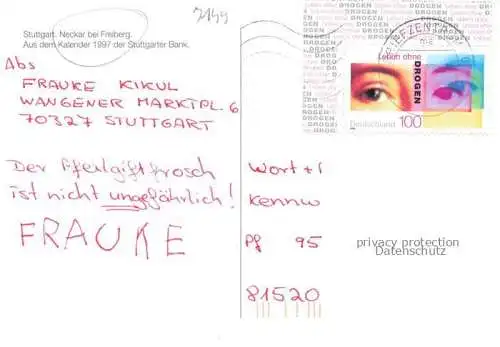 7149
Stuttgart. Neckar bei Freiberg.
Aus dem Kalender 1997 der Stuttgarter Bank.
Abs
FRAUKE KIKUL
WANGENER MARKTPL. 6
70327 STUTTGART
Der Pfeilgiftfrosch
ist nicht ungefährlich!
FRAUKE
Leben ohne
DROGEN
Deutschland 100
Wort + 
Kennw
Pf 95
81520
privacy protection
Datenschutz